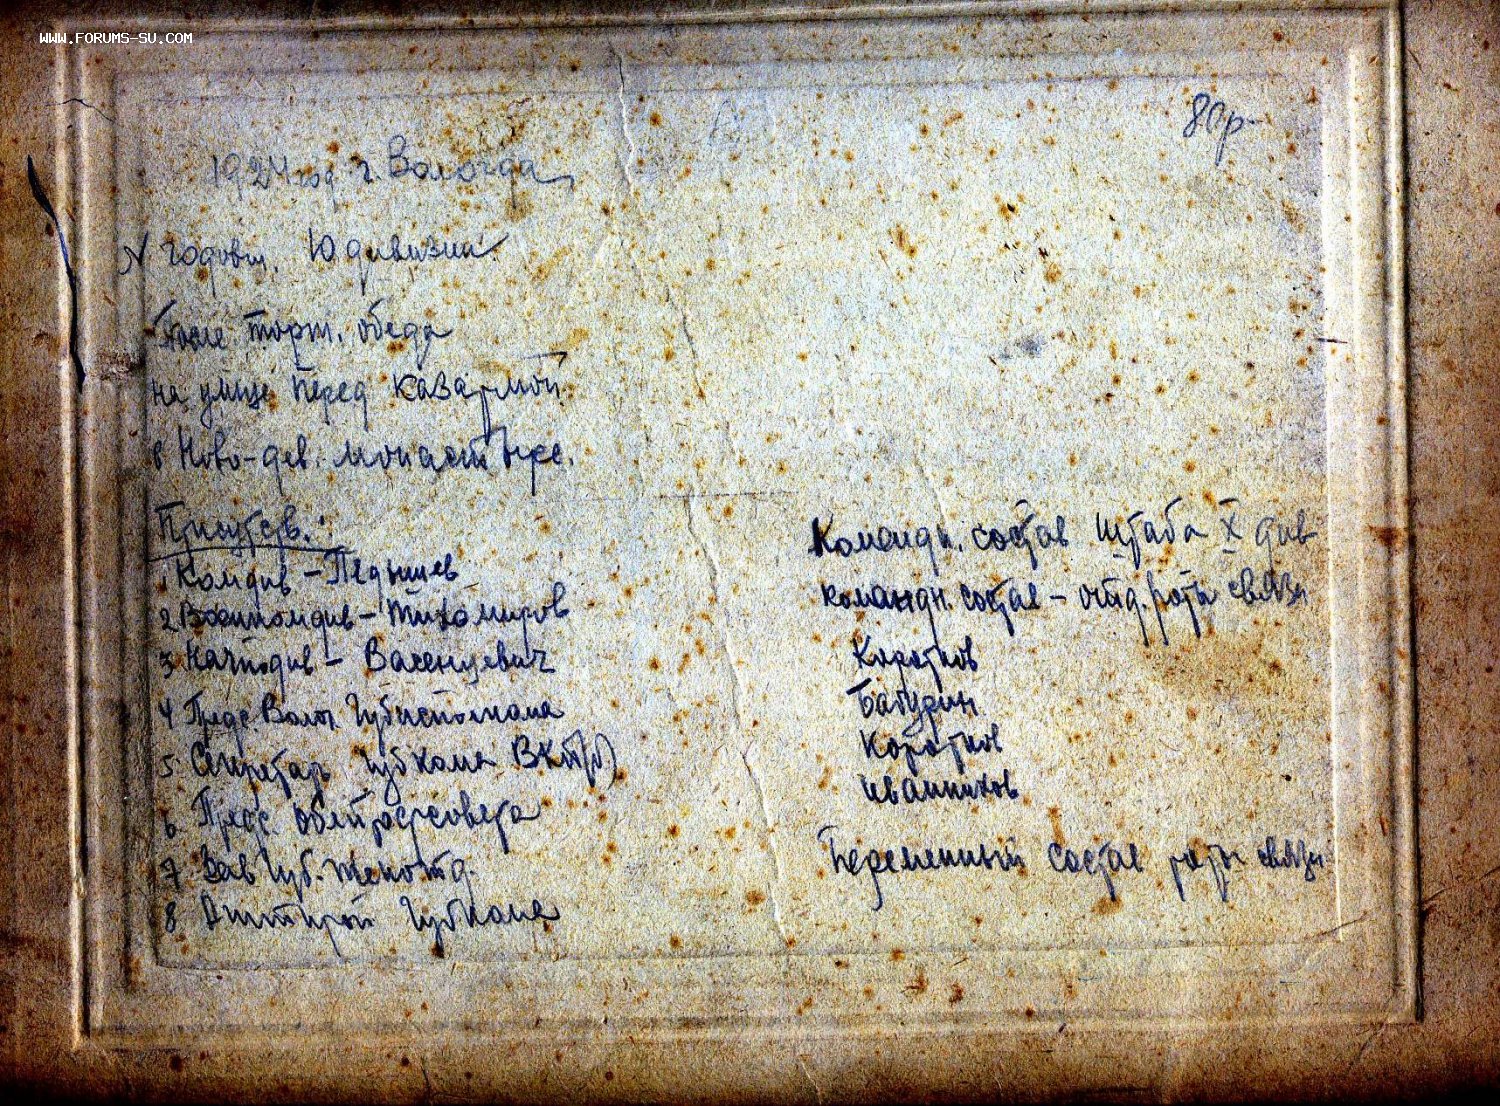 WWW.FORUMS-SU.COM
80р-
1924 год г. Вологда,
V годовщ. 10 дивизии.
После торж. обеда
на улице перед казармой
в Ново-дев. монастыре.
Присутств.:
1 Комдив – Ледышев
2 Военкомдив – Тихомиров
3 Начподив –
4 Предс. Волог. Губисполкома
5 Секретарь Губкома ВКП(б)
6 Предс. Облпрофсовета
7 Зав Губ. женотд.
8 Губкома
Командн. состав штаба X див
Командн. состав – отд. роты связи
Коротков
Бабурин
Коротков
Иванников
Переменный состав роты связи